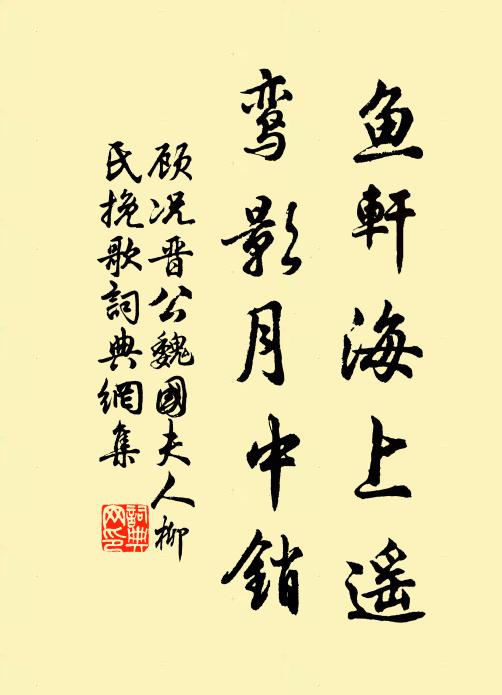 鱼軒海上遥
鸾影月中銷
顾况晋公魏國夫人柳
氏挽歌詞典網集
詞典
网印